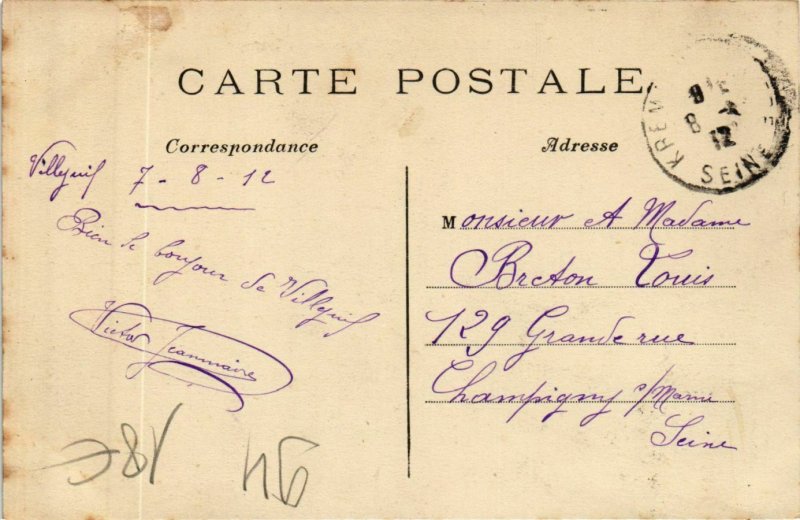 CARTE POSTALE
Correspondance
Adresse
Villejuif 7 - 8 - 12
Bien le bonjour de Villejuif
Victor Jeanmaire
Monsieur & Madame
Breton Louis
129 Grande rue
Champigny s/Marne
Seine
KREM
SEINE
8
8
12
18€
94